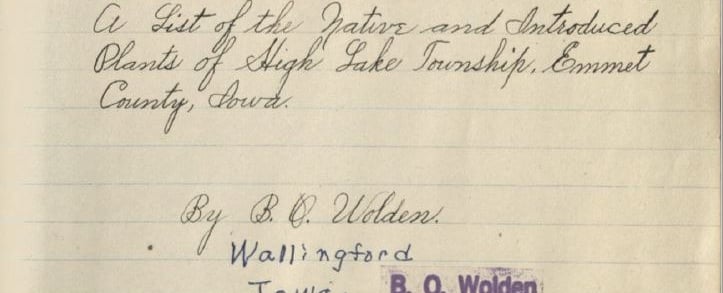 A List of the Native and Introduced
Plants of High Lake Township, Emmet
County, Iowa.
By B. O. Wolden.
Wallingford
Iowa
B. O. Wolden